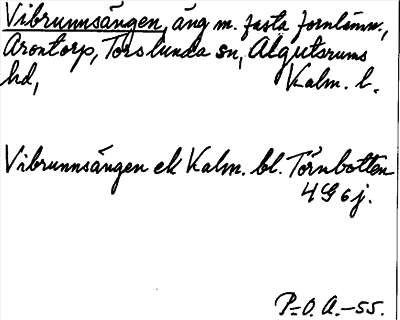 Vibrunnsängen, äng m. fasta fornlämn.,
Arontorp, Torslunda sn, Algutsrums
hd, Kalm. l.
Vibrunnsängen ek Kalm. bl. Törnbotten
4G6j.
P=O. A.-55.